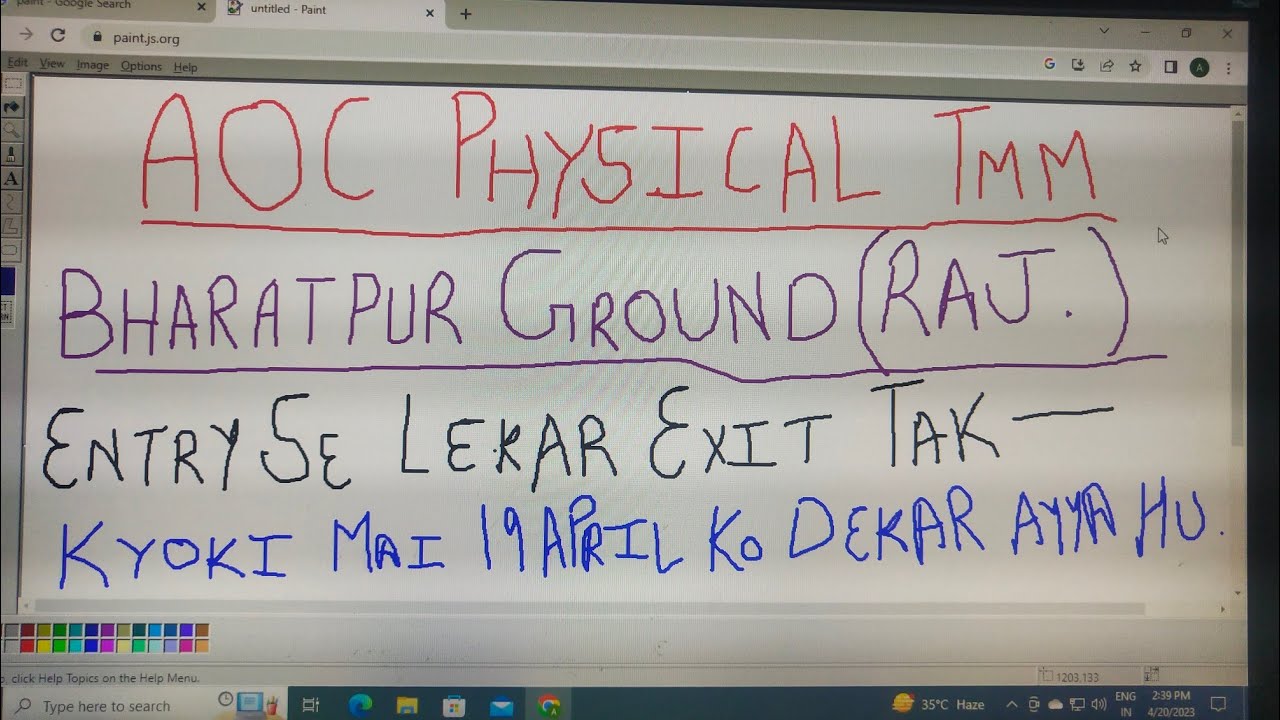 paint - Google Search
untitled - Paint
paint.js.org
Edit View Image Options Help
AOC PHYSICAL TMM
BHARATPUR GROUND (RAJ.)
ENTRY SE LEKAR EXIT TAK —
KYOKI MAI 19 APRIL KO DEKAR AYYA HU.
, click Help Topics on the Help Menu.
1203,133
Type here to search
35°C Haze
ENG
IN
2:39 PM
4/20/2023